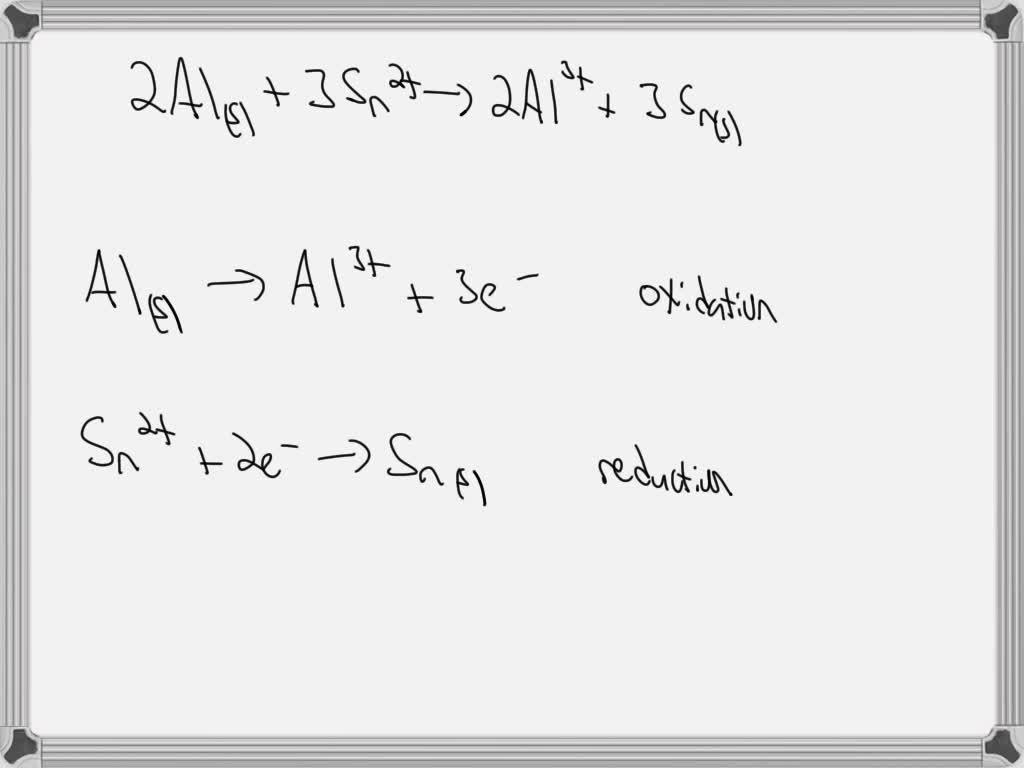 2Al(s) + 3Sn²⁺ → 2Al³⁺ + 3Sn(s)
Al(s) → Al³⁺ + 3e⁻ oxidation
Sn²⁺ + 2e⁻ → Sn(s) reduction